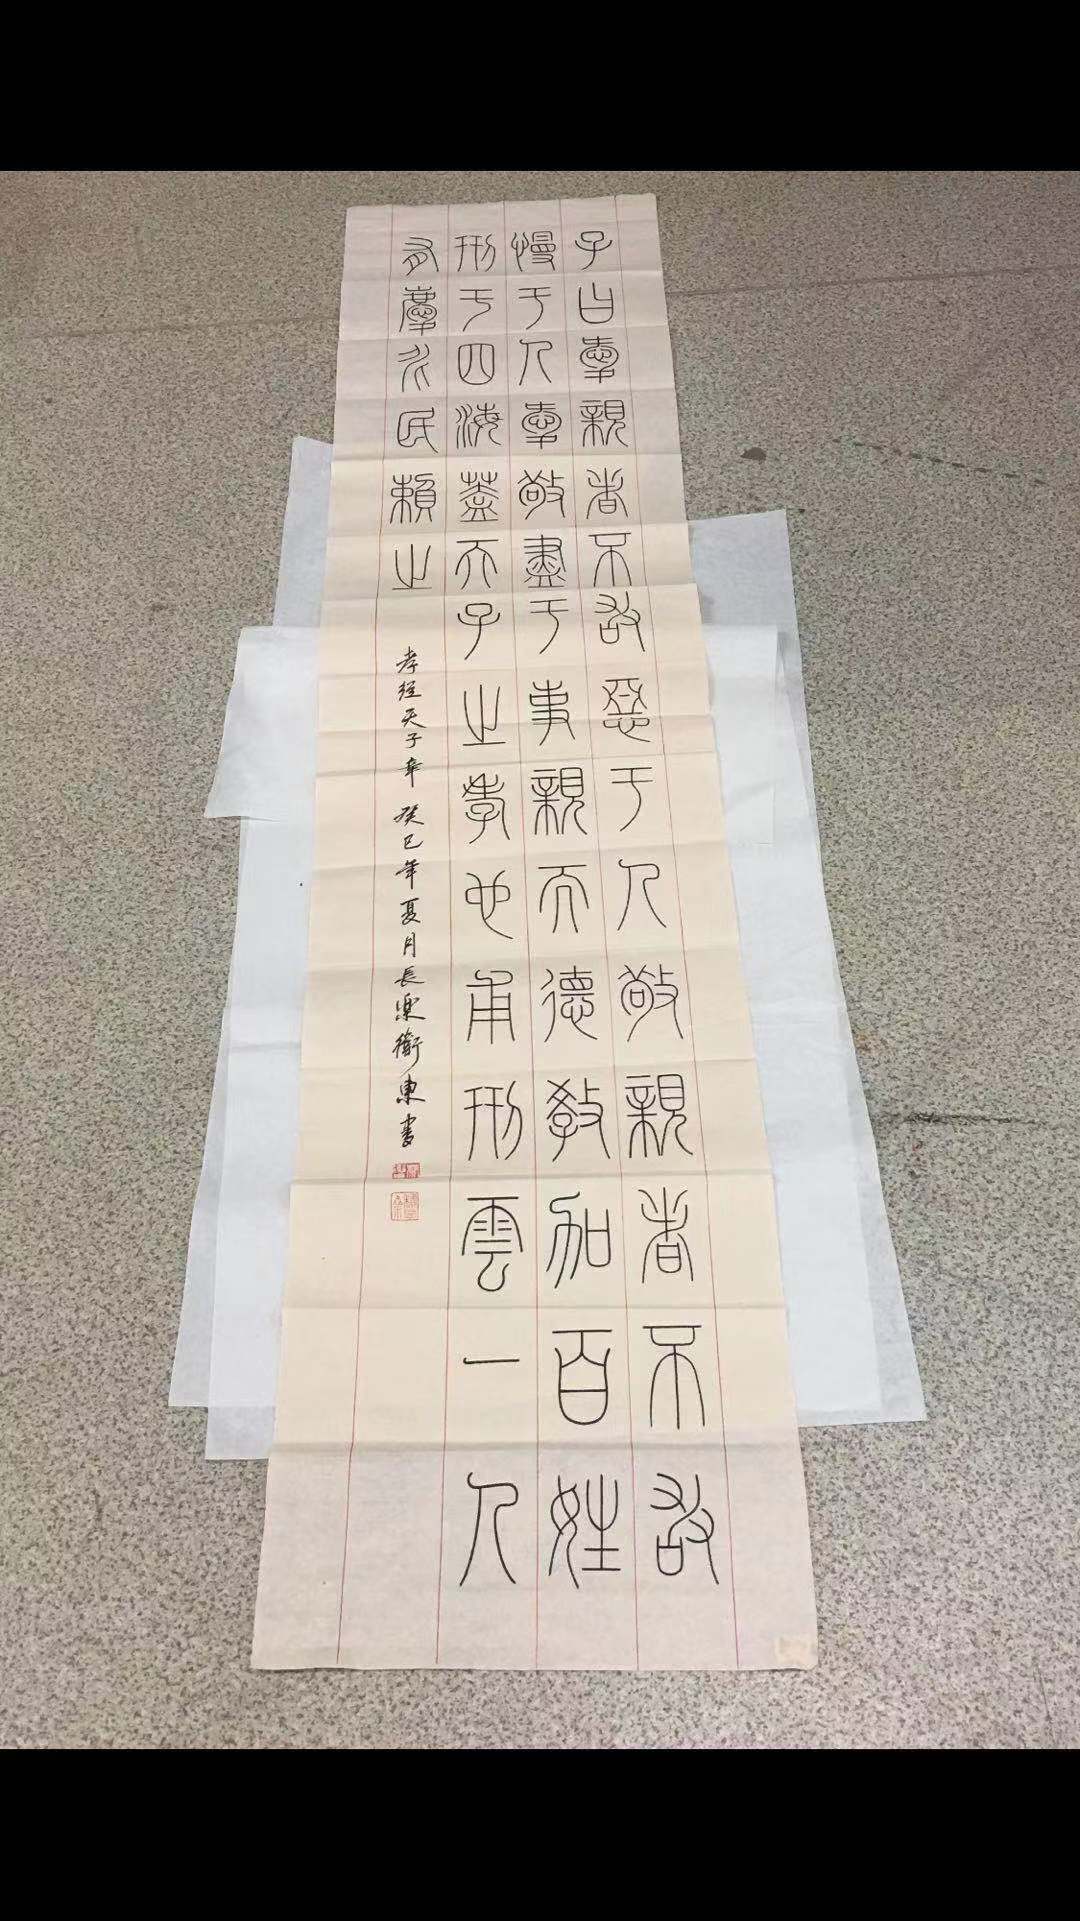 子曰愛親者不敢惡于人敬親者不敢
慢于人愛敬盡于事親而德教加百姓
刑于四海蓋天子之孝也甫刑雲一人
有慶兆民賴之
孝経天子章 癸巳年夏月長樂衛東書